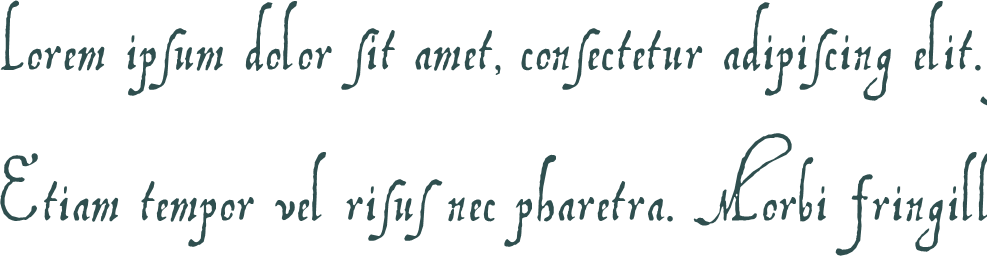 Lorem ipſum dolor ſit amet, conſectetur adipiſcing elit.
Etiam tempor vel riſuſ nec pharetra. Morbi fringill